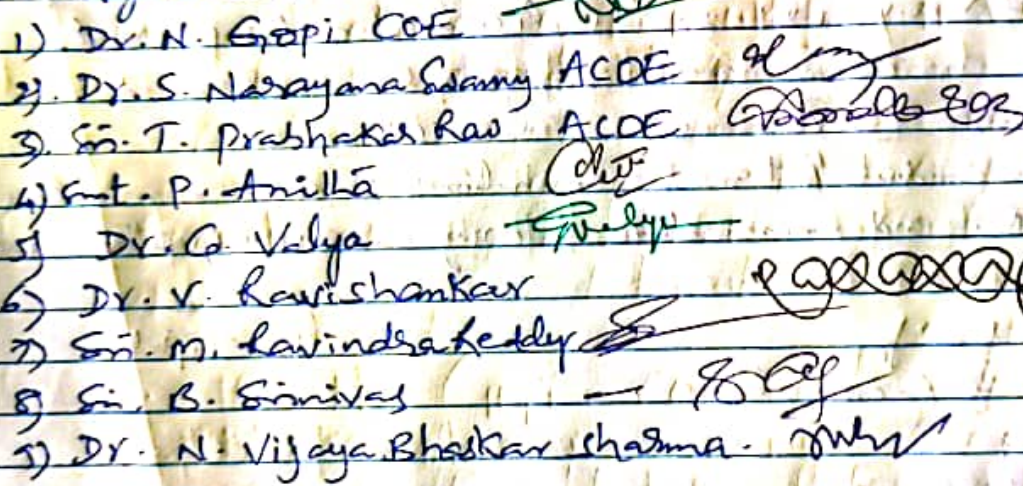 1) Dr. N. Gopi COE
2) Dr. S. Narayana Swamy ACOE
3) Sri. T. Prabhakar Rao ACOE
4) Smt. P. Anitha
5) Dr. G. Valya
6) Dr. V. Ravishankar
7) Sri. M. Ravindra Reddy
8) Sri. B. Srinivas
9) Dr. N. Vijaya Bhaskar Sharma.